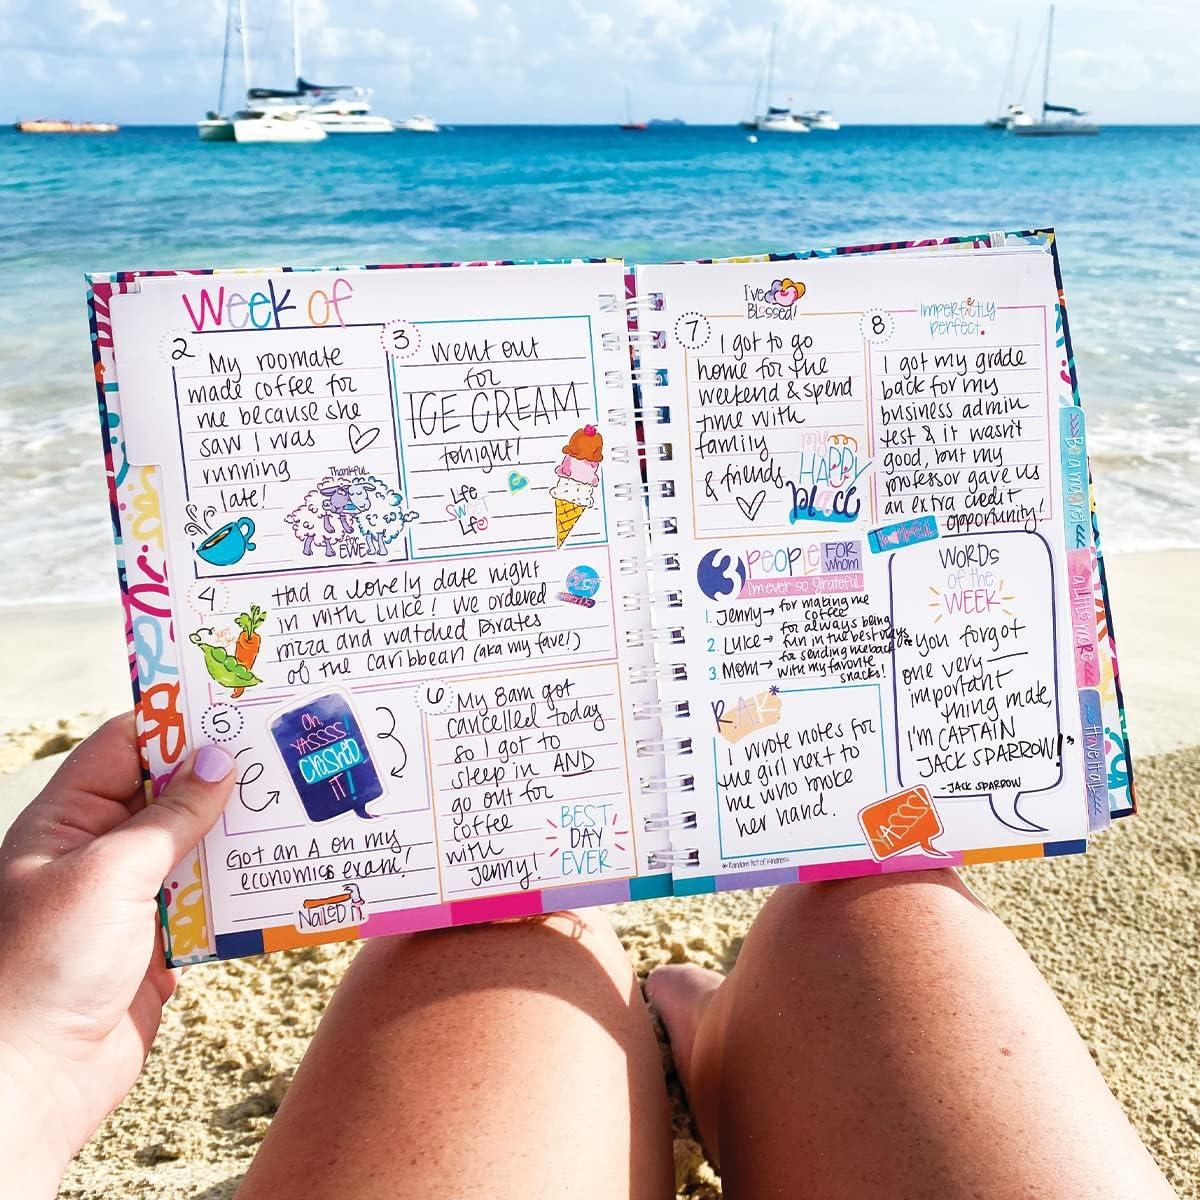 Week of
2
My roommate
made coffee for
me because she
saw I was
running
late!
Thankful
for EWE
3
Went out
for
ICE CREAM
tonight!
Life
Sweet
Life
4
Had a lovely date night
in with Luke! We ordered
pizza and watched Pirates
of the Caribbean (aka my fave!)
BEST
5
Oh,
YASSSS!
CRUSHED
IT!
Got an A on my
economics exam!
NAILED It.
6
My 8am got
cancelled today
so I got to
sleep in AND
go out for
coffee
with
Jenny!
BEST
DAY
EVER
I've
BLessed!
7
I got to go
home for the
weekend & spend
time with
family
& friends
my
HAPPY
place
8
imperfectly
perfect.
I got my grade
back for my
business admin
test & it wasn't
good, but my
professor gave us
an extra credit
opportunity!
Thankful
3 PEOPLE FOR whom
I'm ever so grateful
1. Jenny → for making me
coffee
2. Luke → for always being
fun in the best ways
3. Mom → for sending me back
with my favorite
snacks!
R.A.K*
I wrote notes for
the girl next to
me who broke
her hand.
* Random Act of Kindness
YASSS!
WORDS
of the
WEEK
"You forgot
one very
important
thing mate,
I'M CAPTAIN
JACK SPARROW!"
- JACK SPARROW
Be a magnet
a little more